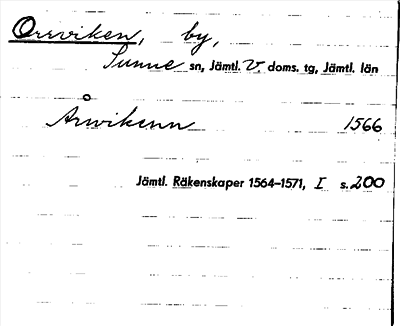 Orrviken, by,
Sunne sn, Jämtl. V. doms. tg, Jämtl. län
Årwikenn 1566
Jämtl. Räkenskaper 1564–1571, I s. 200